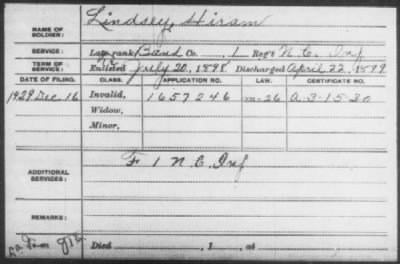 NAME OF SOLDIER: Lindsey, Hiram
SERVICE: Late rank Band Co. 1 Reg't N.C. Inf
TERM OF SERVICE: Enlisted July 20, 1898 Discharged April 22, 1899
DATE OF FILING. CLASS. APPLICATION NO. LAW. CERTIFICATE NO.
1929 Dec 16 Invalid, 1657246 m-26 A-3-15-30
Widow,
Minor,
ADDITIONAL SERVICES: F 1 N.C. Inf
REMARKS:
Died , 1 , at